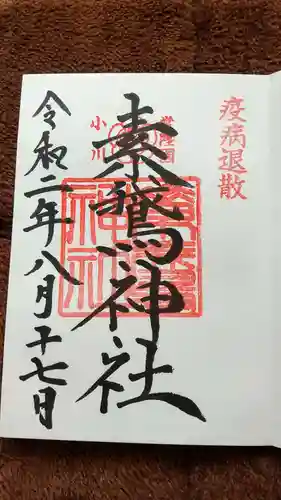 疫病退散
常陸国
小川
素鵞神社
令和二年八月十七日